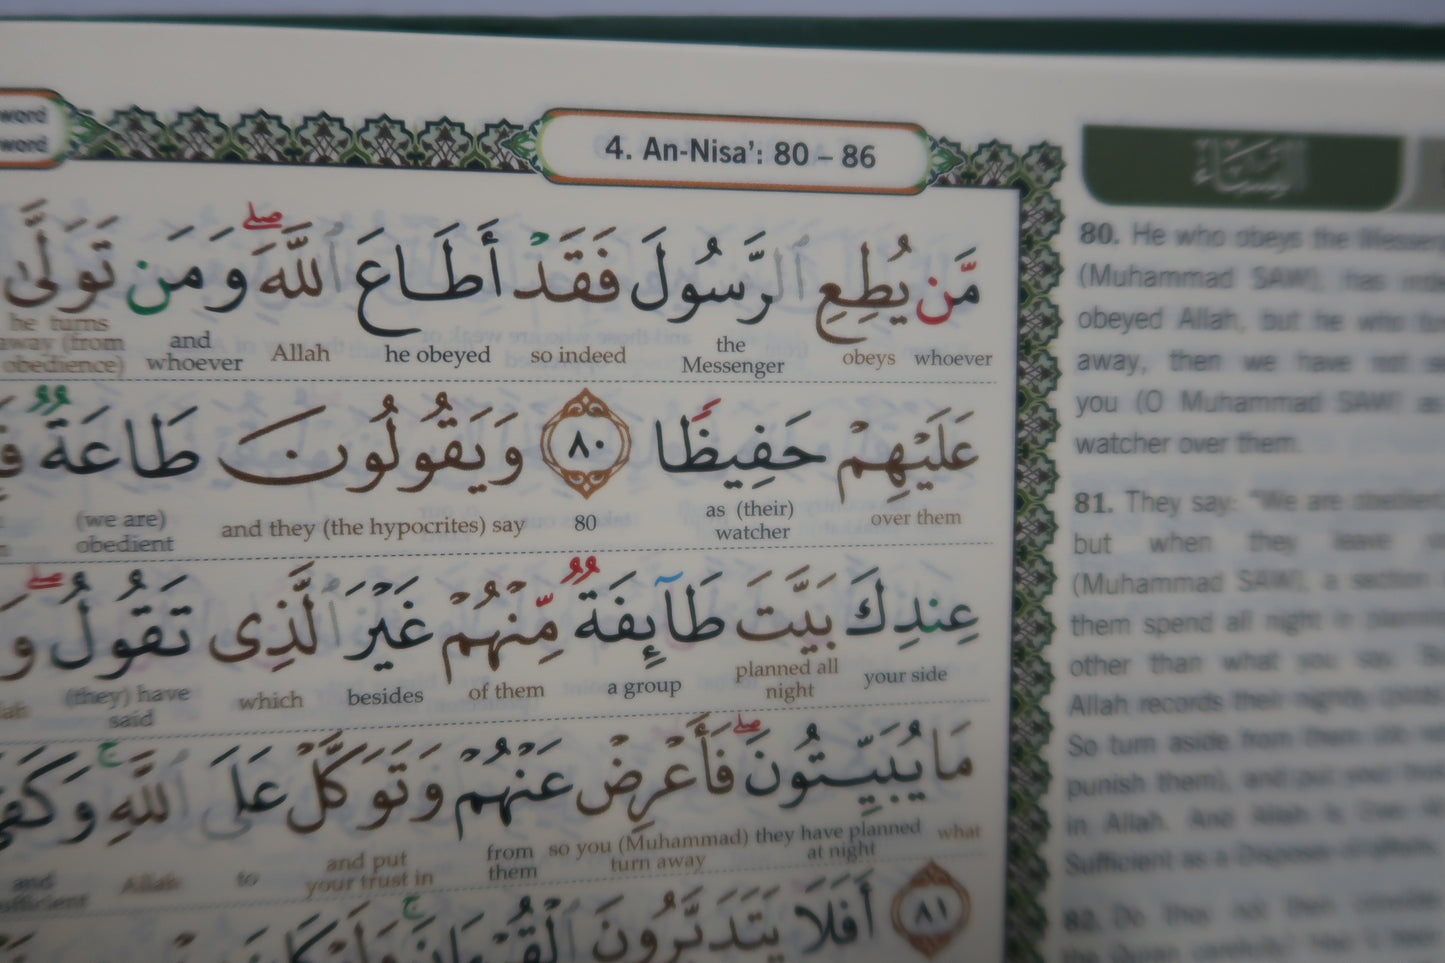 word
word
4. An-Nisa': 80 – 86
مَّن يُطِعِ ٱلرَّسُولَ فَقَدْ أَطَاعَ ٱللَّهَ ۖ وَمَن تَوَلَّىٰ
whoever obeys the Messenger so indeed he obeyed Allah and whoever he turns away (from obedience)
عَلَيْهِمْ حَفِيظًا ٨٠ وَيَقُولُونَ طَاعَةٌ
over them as (their) watcher 80 and they (the hypocrites) say (we are) obedient
عِندِكَ بَيَّتَ طَآئِفَةٌ مِّنْهُمْ غَيْرَ ٱلَّذِى تَقُولُ ۖ
your side planned all night a group of them besides which (they) have said
مَا يُبَيِّتُونَ ۖ فَأَعْرِضْ عَنْهُمْ وَتَوَكَّلْ عَلَى ٱللَّهِ ۚ
what they have planned at night so you (Muhammad) turn away from them and put your trust in to Allah and
٨١ أَفَلَا يَتَدَبَّرُونَ ٱلْقُرْءَانَ ۚ
80. He who obeys the
(Muhammad SAW), has
obeyed Allah, but he who
away, then we have not
you (O Muhammad SAW) as
watcher over them.
81. They say: "We are
but when they leave
(Muhammad SAW), a section
them spend all night in
other than what you say.
Allah records their nightly
So turn aside from them
punish them), and put your
in Allah. And Allah is
Sufficient as a Disposer of
82. Do they not then consider
the Quran carefully?